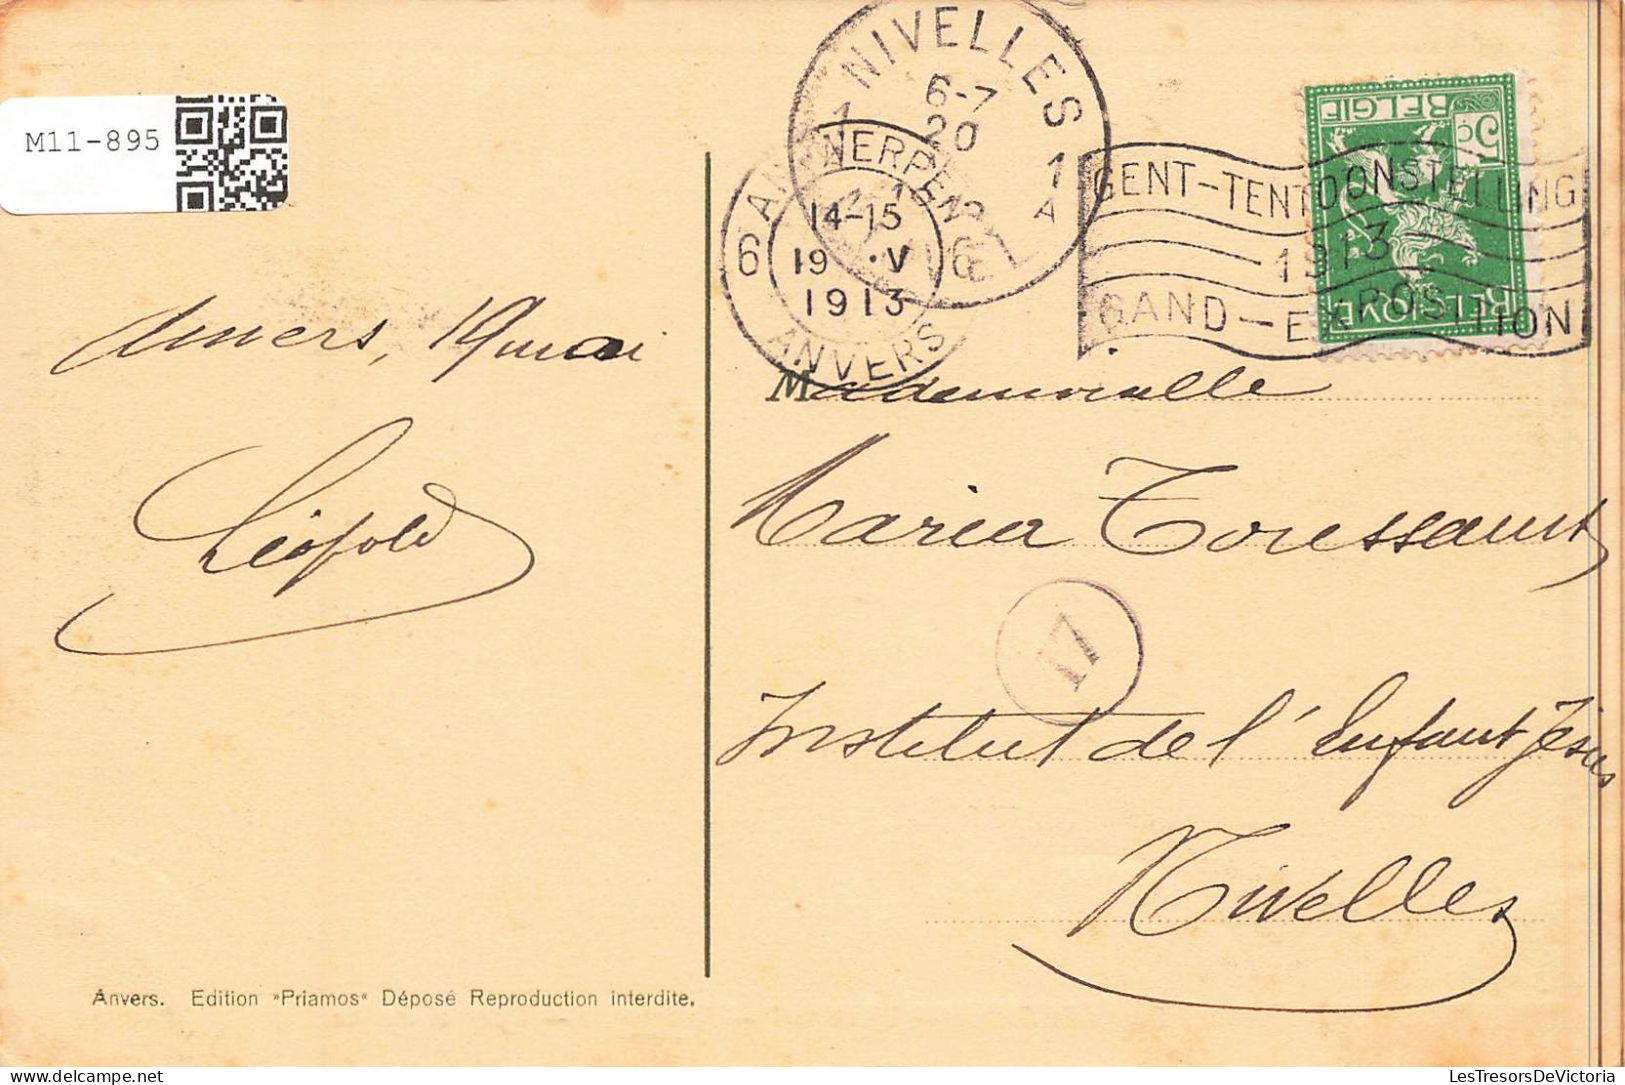 M11-895
NIVELLES
6-7
20
1
1
A
ANTWERPEN
6 6
14-15
19 .V
1913
ANVERS
GENT-TENTOONSTELLING
1913
GAND-EXPOSITION
BELGIE
5c
BELGIQUE
Anvers, 19 mai
Léopold
Mademoiselle
Maria Toussaint
17
Institut de l'Enfant Jésus
Nivelles
Anvers. Edition »Priamos« Déposé Reproduction interdite.
LesTresorsDeVictoria